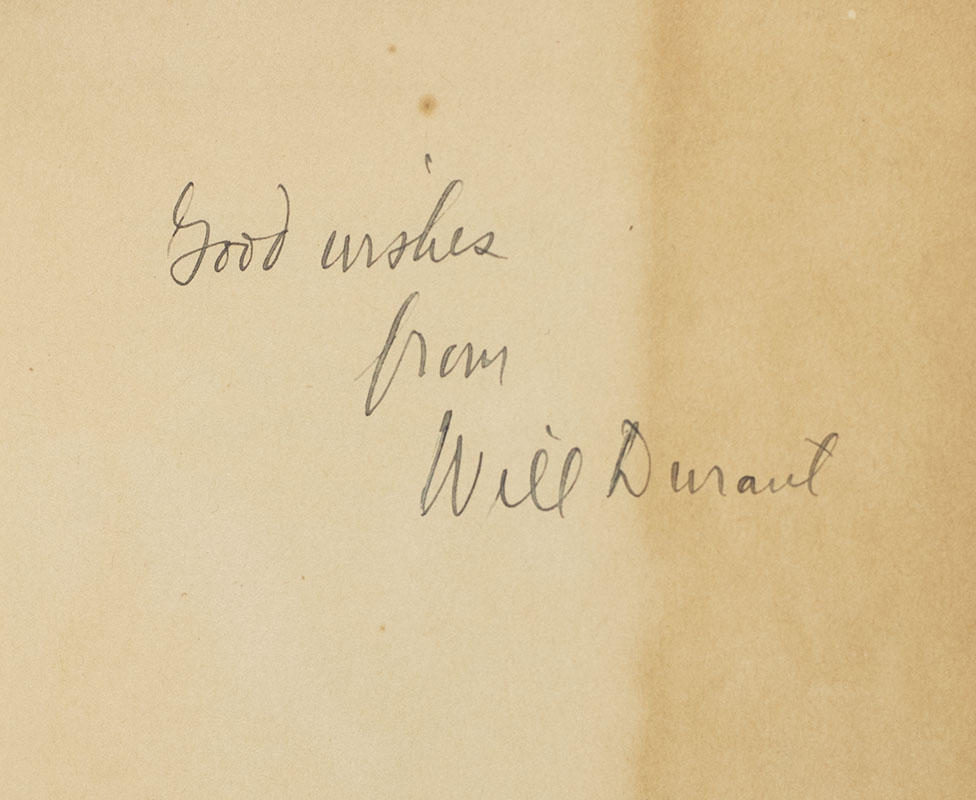 Good wishes
from
Will Durant